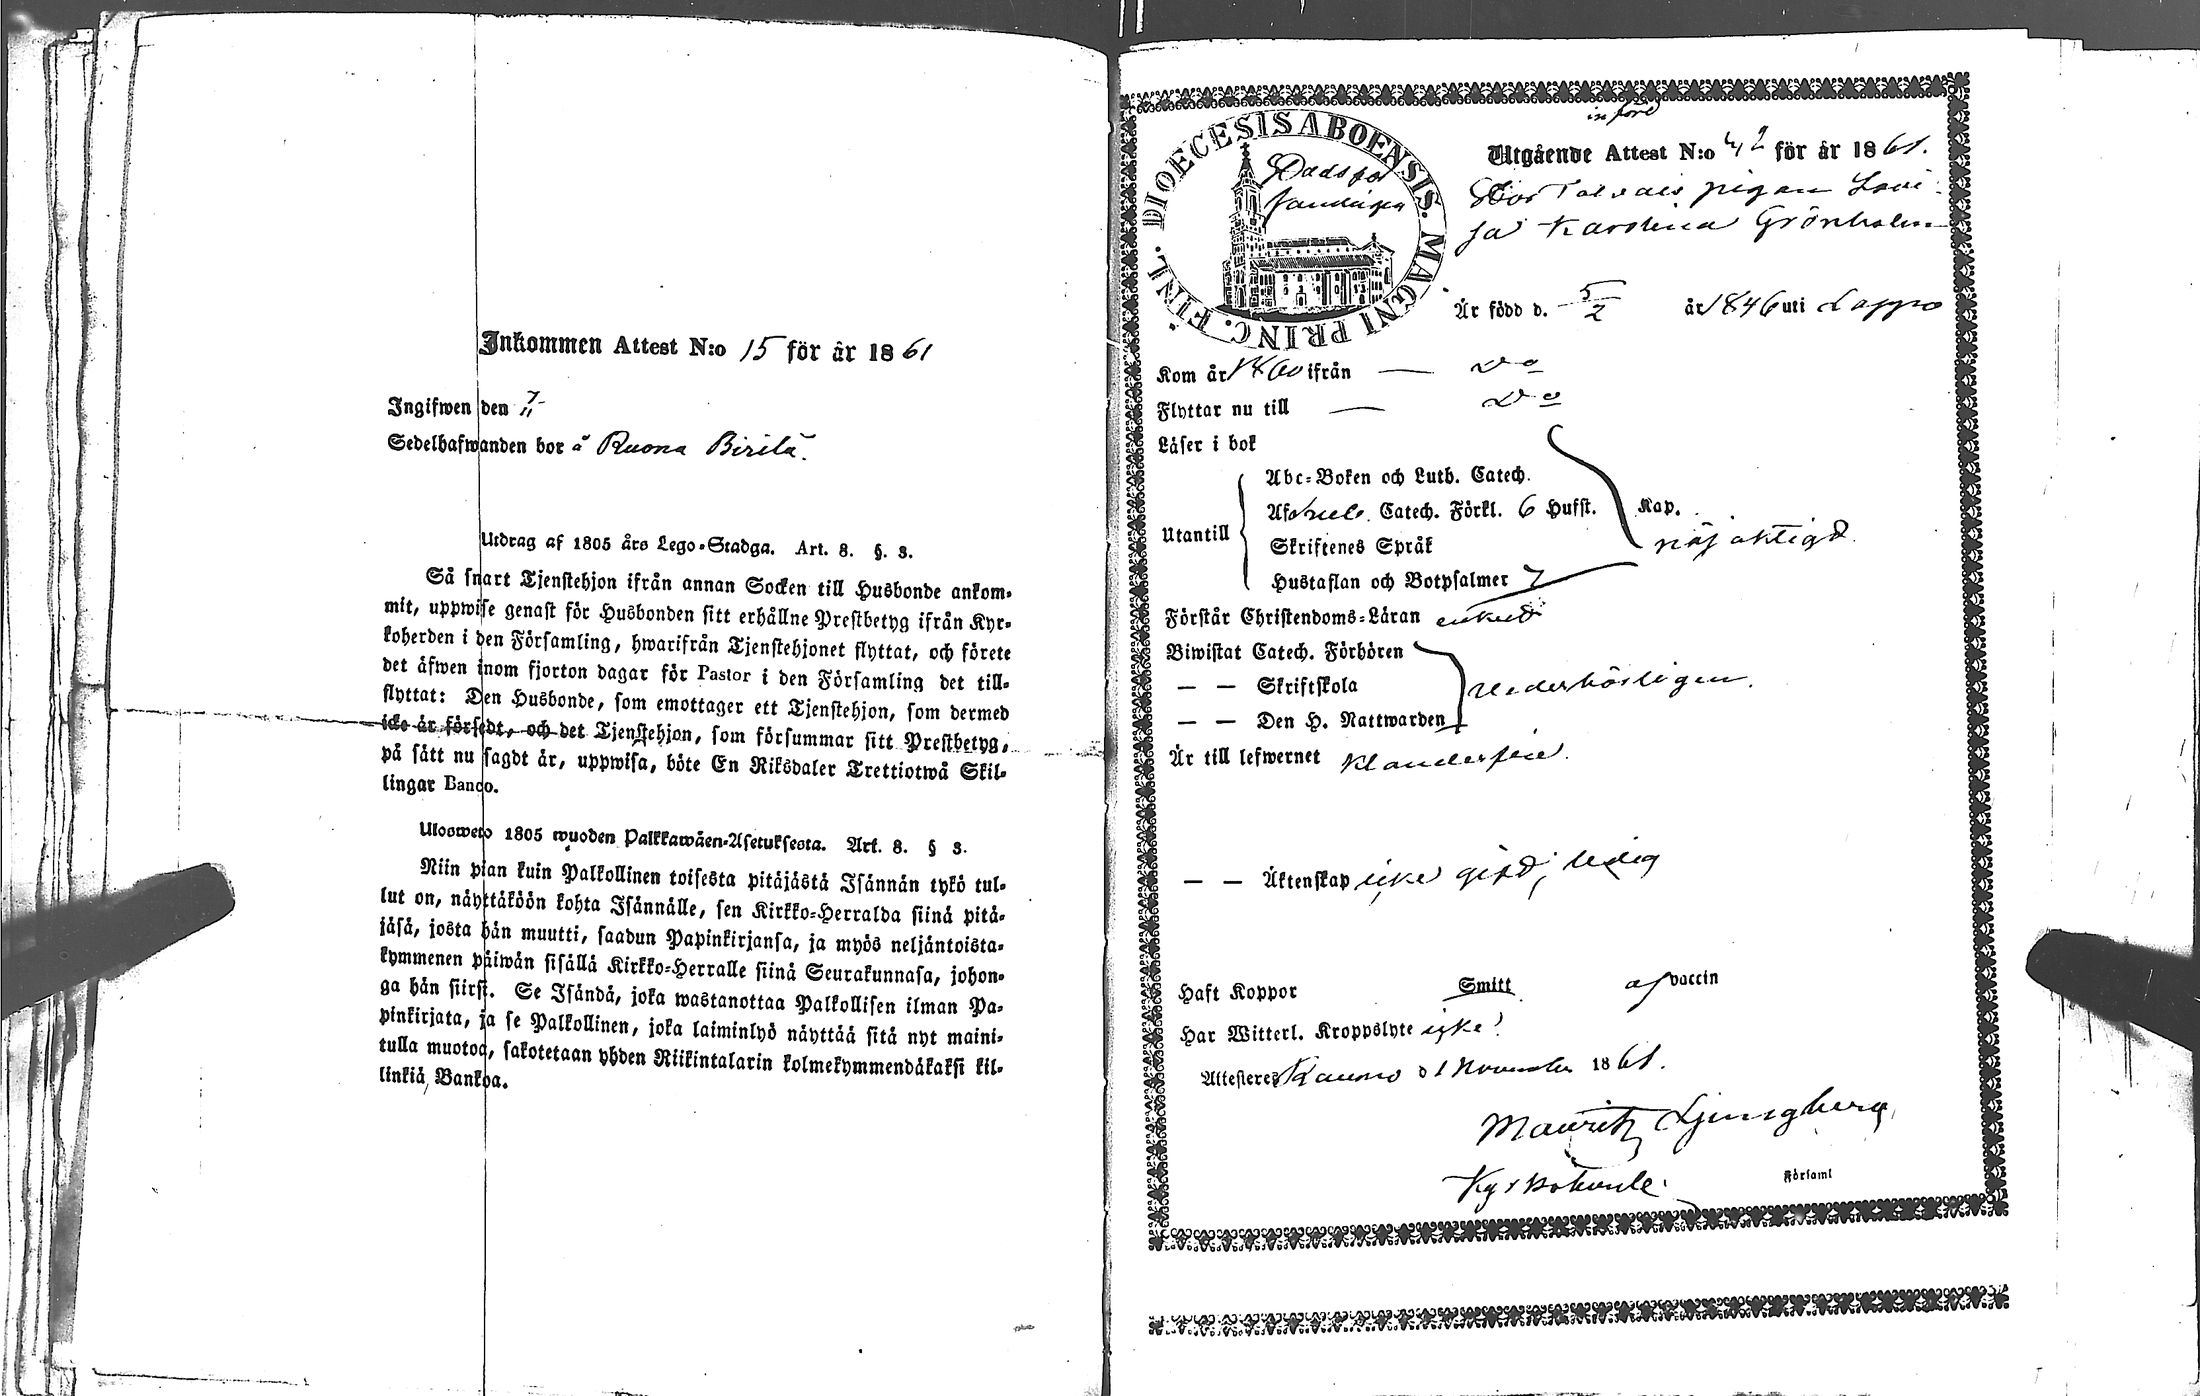 Inkommen Attest N:o 15 för år 1861
Ingifwen den 7/11
Sedelhafwanden bor å Ruona Birilä.
Utdrag af 1805 års Lego-Stadga. Art. 8. §. 3.
Så snart Tjenstehjon ifrån annan Socken till Husbonde ankom-
mit, uppwise genast för Husbonden sitt erhållne Prestbetyg ifrån Kyr-
koherden i den Församling, hwarifrån Tjenstehjonet flyttat, och förete
det äfwen inom fjorton dagar för Pastor i den Församling det till-
flyttat: Den Husbonde, som emottager ett Tjenstehjon, som dermed
icke är försedt, och det Tjenstehjon, som försummar sitt Prestbetyg,
på sätt nu sagdt är, uppwisa, böte En Riksdaler Trettiotwå Skil-
lingar Banco.
Ulosweto 1805 wuoden Palkkawäen-Asetuksesta. Art. 8. § 3.
Niin pian kuin Palkollinen toisesta pitäjästä Isännän tykö tul-
lut on, näyttäköön kohta Isännälle, sen Kirkko-Herralda siinä pitä-
jäsä, josta hän muutti, saadun Papinkirjansa, ja myös neljäntoista-
kymmenen päiwän sisällä Kirkko-Herralle siinä Seurakunnasa, johon-
ga hän siirsi. Se Isändä, joka wastanottaa Palkollisen ilman Pa-
pinkirjata, ja se Palkollinen, joka laiminlyö näyttää sitä nyt maini-
tulla muotoa, sakotetaan yhden Riikintalarin kolmekymmendäkaksi kil-
linkiä Bankoa.
införd
DIOECESIS ABOENSIS. MAGNI PRINC. FINL.
Utgående Attest N:o 42 för år 1861.
pigan Lovi-
sa Karolina Grönholm
Är född d. 5/2 år 1846 uti Lappo
Kom år 1860 ifrån — Do
Flyttar nu till — Do
Läser i bok
Abc-Boken och Luth. Catech.
Utantill
Af Catech. Förkl. 6 Hufst. Kap.
Skriftenes Språk nöjaktigt.
Hustaflan och Botpsalmer 7
Förstår Christendoms-Läran enkelt
Biwistat Catech. Förhören
— — Skriftskola vederbörligen.
— — Den H. Nattwarden
Är till lefwernet klanderfri.
— — Äktenskap icke gift, ledig
Haft Koppor Smitt af vaccin
Har Witterl. Kroppslyte icke!
Attesteres Kaumo d 1 November 1861.
Mauritz Ljungberg,
Kyrkoherde. Församl